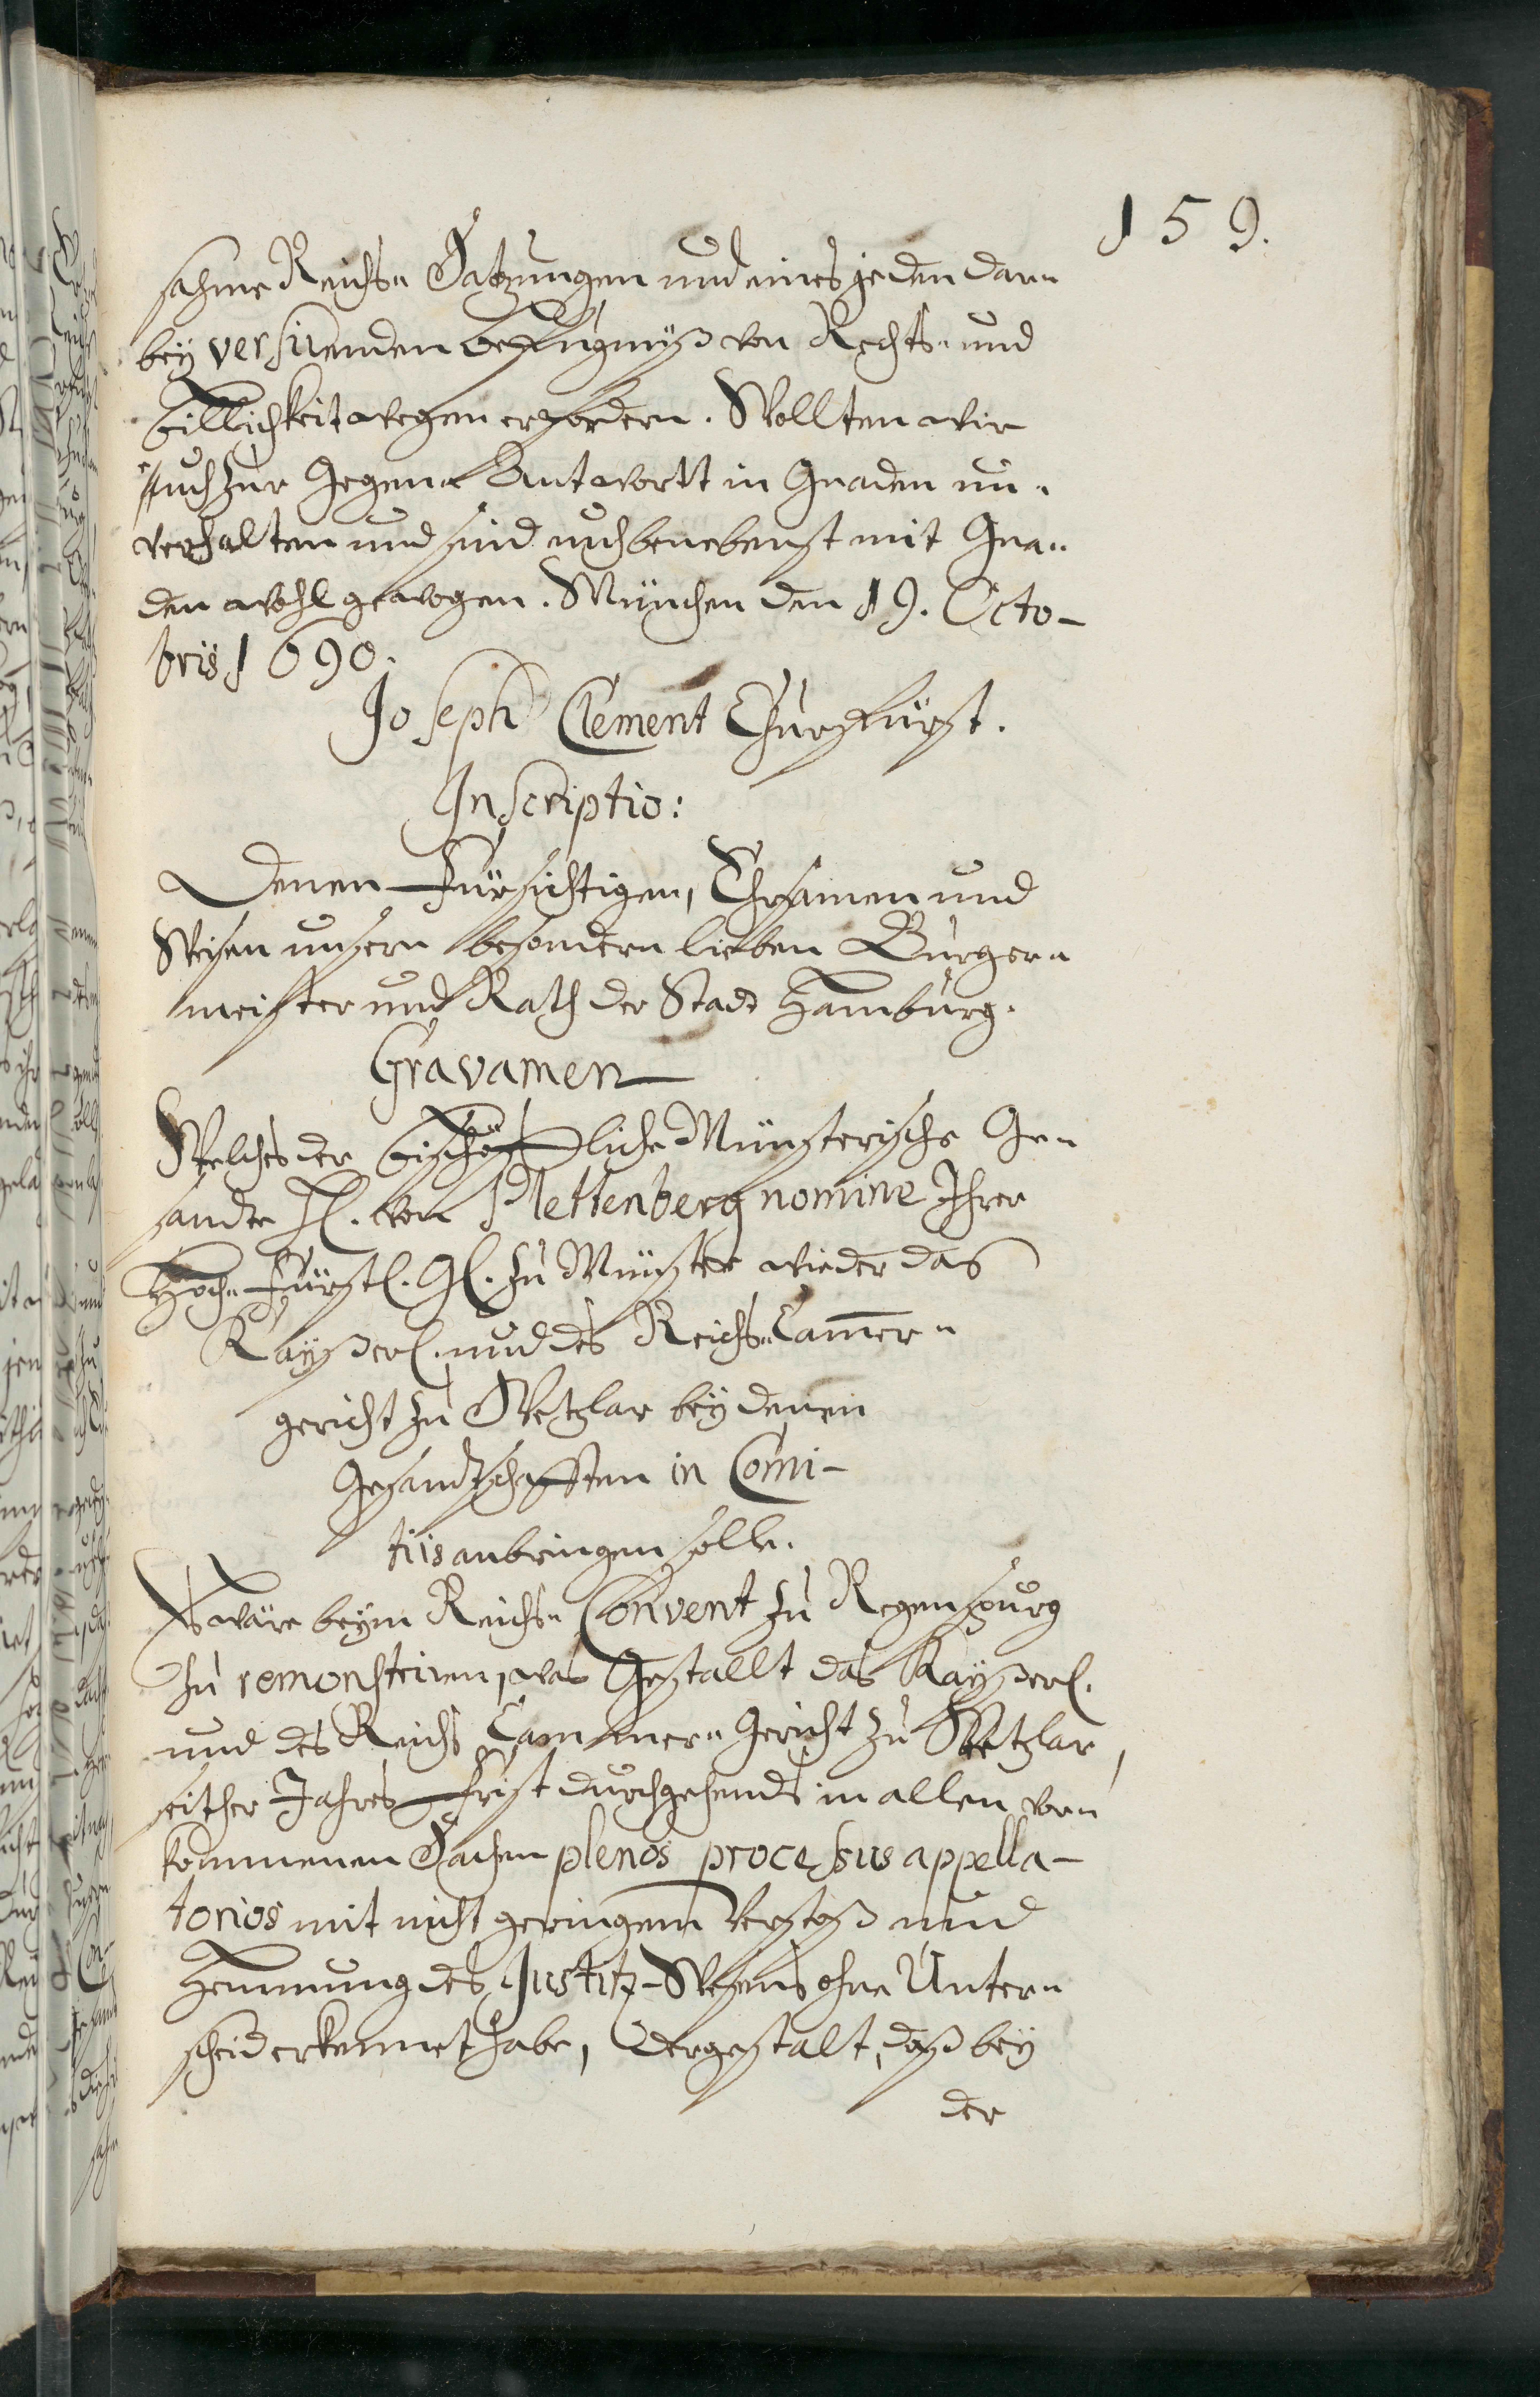 159.
sahme Reichs- Satzungen und eines jeden dar-
bey versirenden befugnuß von Rechts- und
billichkeit wegen erfordern. Wollten wir
Euch zur Gegen- Antwortt in Gnaden un-
verhalten und sind euch benebenst mit Gna-
den wohl gewogen. München den 19. Octo-
bris 1690.
Joseph Clement Churfürst.
Inscriptio:
Denen Fürsichtigen, Ehrsamen und
Weisen unsern besondern lieben Bürger-
meister und Rath der Stadt Hamburg.
Gravamen
Welches der bischöffliche Münsterische Ge-
sandte H. von Plettenberg nomine Ihrer
Hoch-Fürstl. Gl. zu Münster wieder das
Kayßerl. und des Reichs-Cam̅er-
gericht zu Wetzlar bey denen
Gesandtschafften in Comi-
tiis anbringen solle.
Es wäre beym Reichs- Convent zu Regenspurg
zu remonstriren, was Gestallt das Kayßerl.
und des Reichs Cammer- Gericht zu Wetzlar,
seither Jahres Frist durchgehends in allen vor-
kommenen Sachen plenos processus appella-
torios mit nicht geringem Verstoß und
Hemmung des Justitz-Wesens ohne Unter-
scheid erkennet habe, dergestalt, daß bey
der